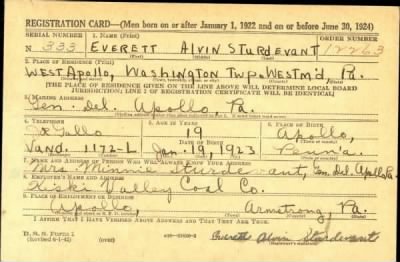 REGISTRATION CARD—(Men born on or after January 1, 1922 and on or before June 30, 1924)
SERIAL NUMBER 1. NAME (Print) ORDER NUMBER
N 333 EVERETT ALVIN STURDEVANT 12263
(First) (Middle) (Last)
2. PLACE OF RESIDENCE (Print)
WEST APOLLO, WASHINGTON TWP. WESTM'D PA.
[THE PLACE OF RESIDENCE GIVEN ON THE LINE ABOVE WILL DETERMINE LOCAL BOARD
JURISDICTION; LINE 2 OF REGISTRATION CERTIFICATE WILL BE IDENTICAL]
3. MAILING ADDRESS
Gen. Del. Apollo Pa.
4. TELEPHONE 5. AGE IN YEARS 6. PLACE OF BIRTH
19 Apollo,
DATE OF BIRTH
Vand. 1172-L Jan. 19, 1923 Penn'a
7. NAME AND ADDRESS OF PERSON WHO WILL ALWAYS KNOW YOUR ADDRESS
Mrs. Minnie Sturdevant, Gen. Del. Apollo, Pa.
8. EMPLOYER'S NAME AND ADDRESS
Kiski Valley Coal Co.
9. PLACE OF EMPLOYMENT OR BUSINESS
Apollo, Armstrong, Pa.
I AFFIRM THAT I HAVE VERIFIED ABOVE ANSWERS AND THAT THEY ARE TRUE.
D. S. S. Form 1
(Revised 6-1-42) Everett Alvin Sturdevant
(Registrant's signature)